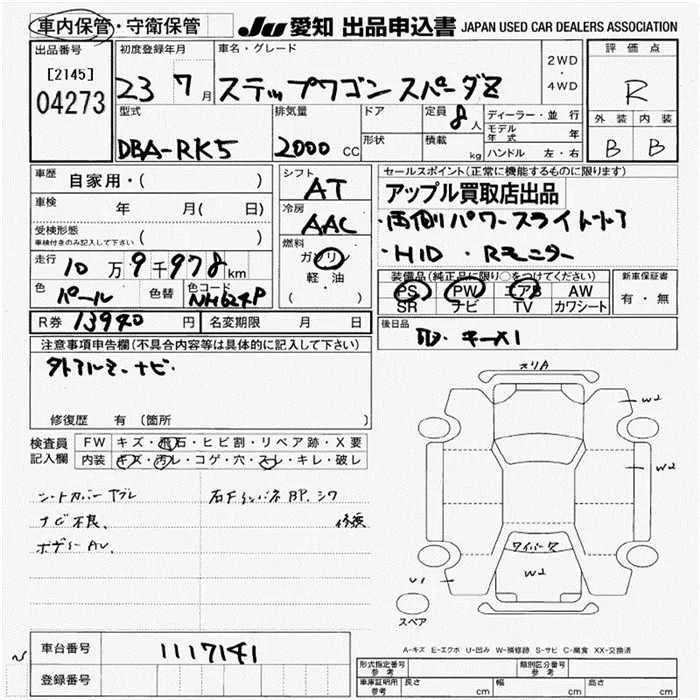 車内保管・守衛保管 JU 愛知 出品申込書 JAPAN USED CAR DEALERS ASSOCIATION
出品番号 初度登録年月 車名・グレード 2WD・4WD 評価点
[2145] 04273 23 7月 ステップワゴン スパーダZ R
型式 排気量 ドア 定員 8人 ディーラー・並行 外装 内装
DBA-RK5 2000 CC 形状 積載 kg モデル年式 年 B B
ハンドル 左・右
車歴 自家用・( ) シフト AT セールスポイント(正常に機能するものに限ります)
車検 年 月( 日) 冷房 AAC アップル買取店出品
受検形態 ( ) ・両側パワースライドドア
車検付きのみ記入して下さい
走行 10万9千978km 燃料 ガソリン 軽油 ( ) ・HID ・Rモニター
色 パール 色替 色コード NH624P 装備品(純正品に限り○をつけてください) 新車保証書
PS PW エアB AW 有・無
SR ナビ TV カワシート
R券 13940円 名変期限 月 日 後日品
注意事項申告欄(不具合内容等は具体的に記入して下さい) キーx1
外アルミ、ナビ.
修復歴 有 (箇所 )
検査員 FW キズ・飛石・ヒビ割・リペア跡・X要
記入欄 内装 キズ・汚レ・コゲ・穴・スレ・キレ・破レ
シートカバー
ナビ不良、
スペア
ワイパー
W2
W2
W2
U1
A-キズ E-エクボ U-凹み W-補修跡 S-サビ C-腐食 XX-交換済
車台番号 1117141
登録番号
形式指定番号 参考 類別区分番号 参考
車庫証明用 参考 長さ cm 幅 cm 高さ cm